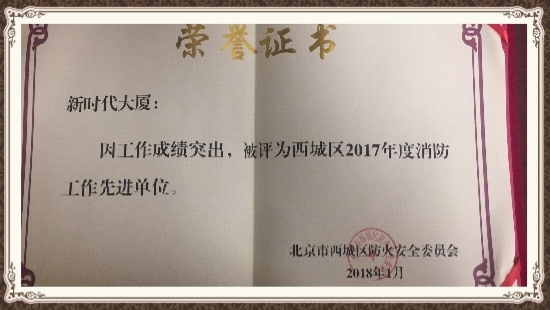 荣誉证书
新时代大厦：
因工作成绩突出，被评为西城区2017年度消防
工作先进单位。
北京市西城区防火安全委员会
2018年1月